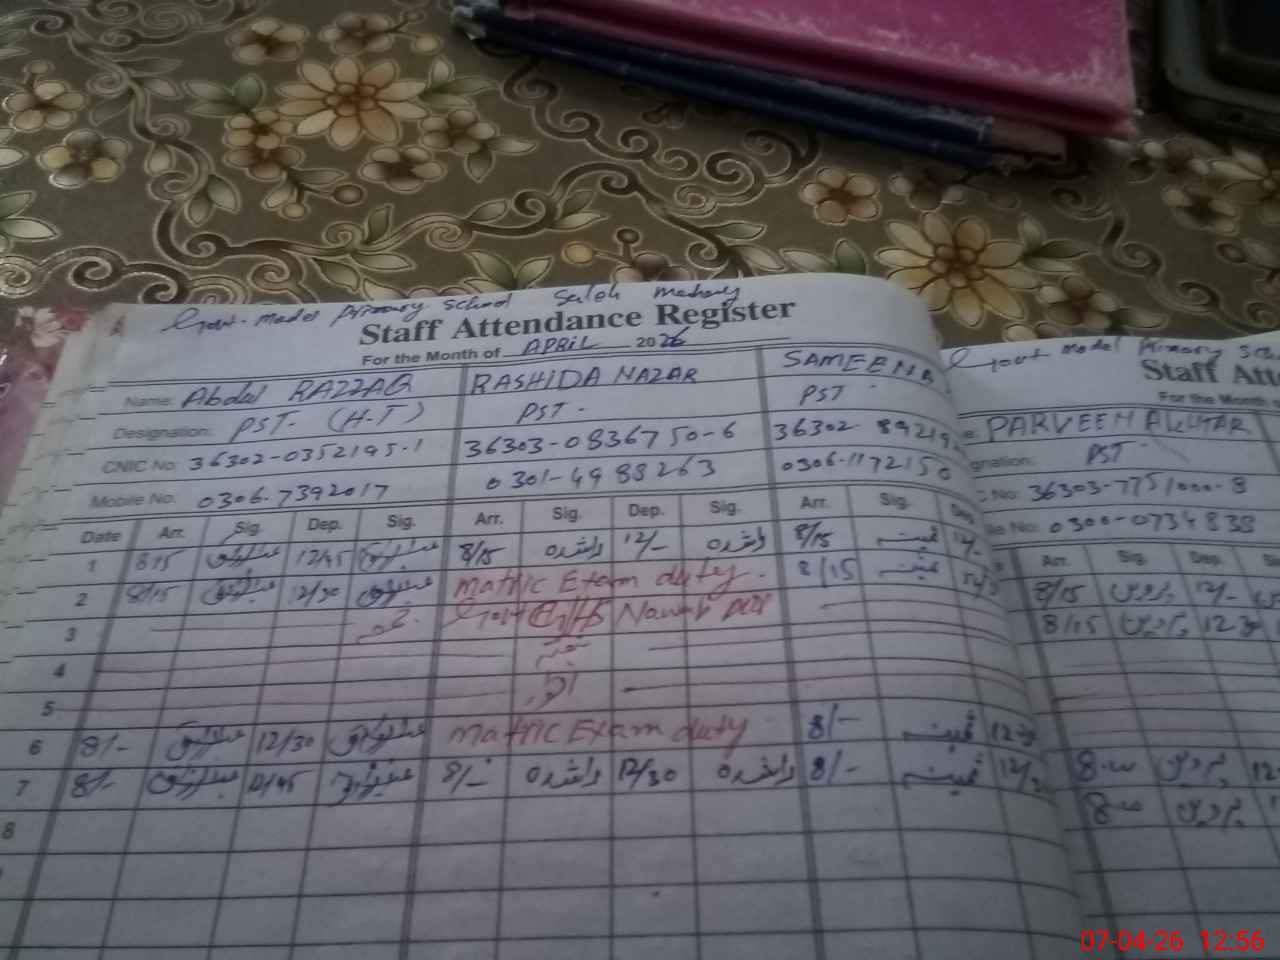 Govt. Model Primary School Saleh
Staff Attendance Register
For the Month of APRIL 2026
Name: Abdul RAZZAQ RASHIDA NAZAR SAMEENA
Designation: PST. (H.T) PST. PST
CNIC No: 36302-0352195-1 36303-0836750-6 36302-89219
Mobile No: 0306-7392017 0301-4988263 0306-1172150
Date Arr. Sig. Dep. Sig. Arr. Sig. Dep. Sig. Arr. Sig. Dep
1 8/15 12/45 8/15 راشدہ 12/- راشدہ 8/15 ثمینہ 12/-
2 8/15 12/30 Matric Exam duty. 8/15 ثمینہ
3 Govt Nawab
4
5 اتوار
6 8/- 12/30 Matric Exam duty 8/- ثمینہ
7 8/- 12/45 8/- راشدہ 12/30 راشدہ 8/- ثمینہ
8
Govt Model Primary Sch
Staff Atte
For the Month
PARVEEN AKHTAR
gnation: PST
No: 36303-7751000-8
le No: 0300-0734838
Arr. Sig. Dep. S
8/15 پروین 12/-
8/15 پروین
8-00 پروین 12
8-00 پروین
07-04-26 12:56